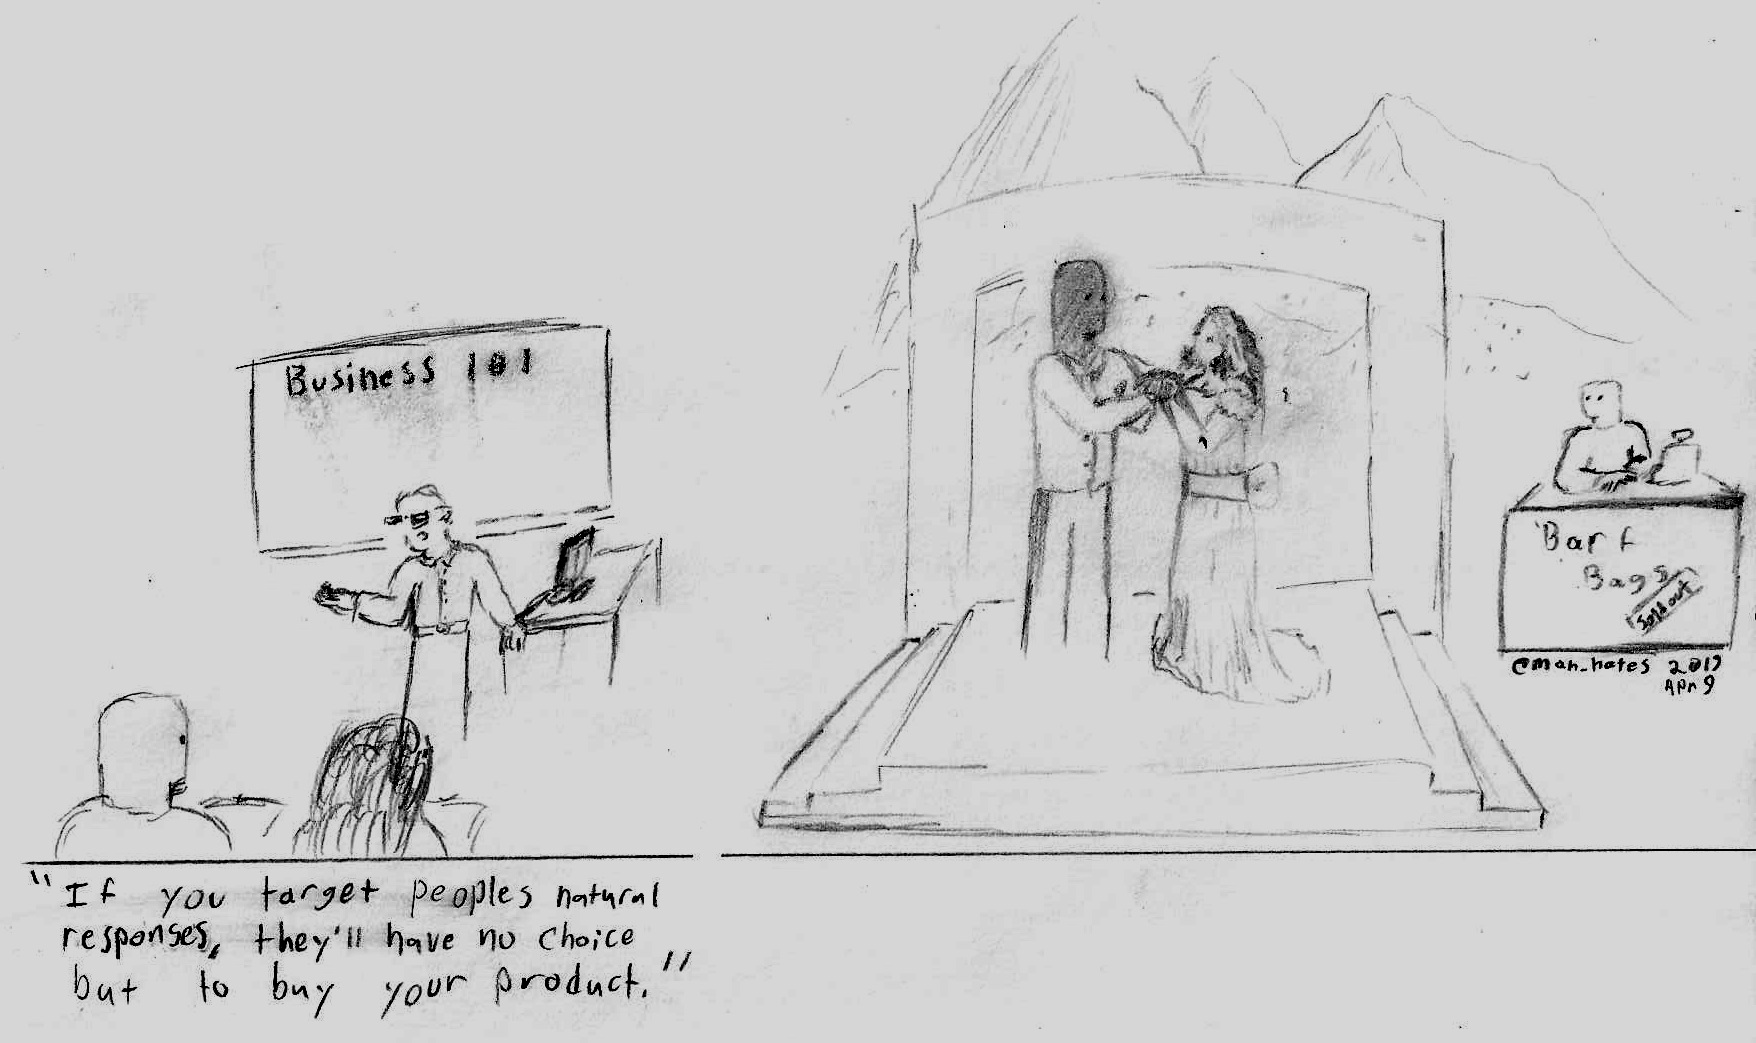 Business 101
"If you target peoples natural
responses, they'll have no choice
but to buy your product."
Barf
Bags
Sold out
@man_hates 2019
Apr 9